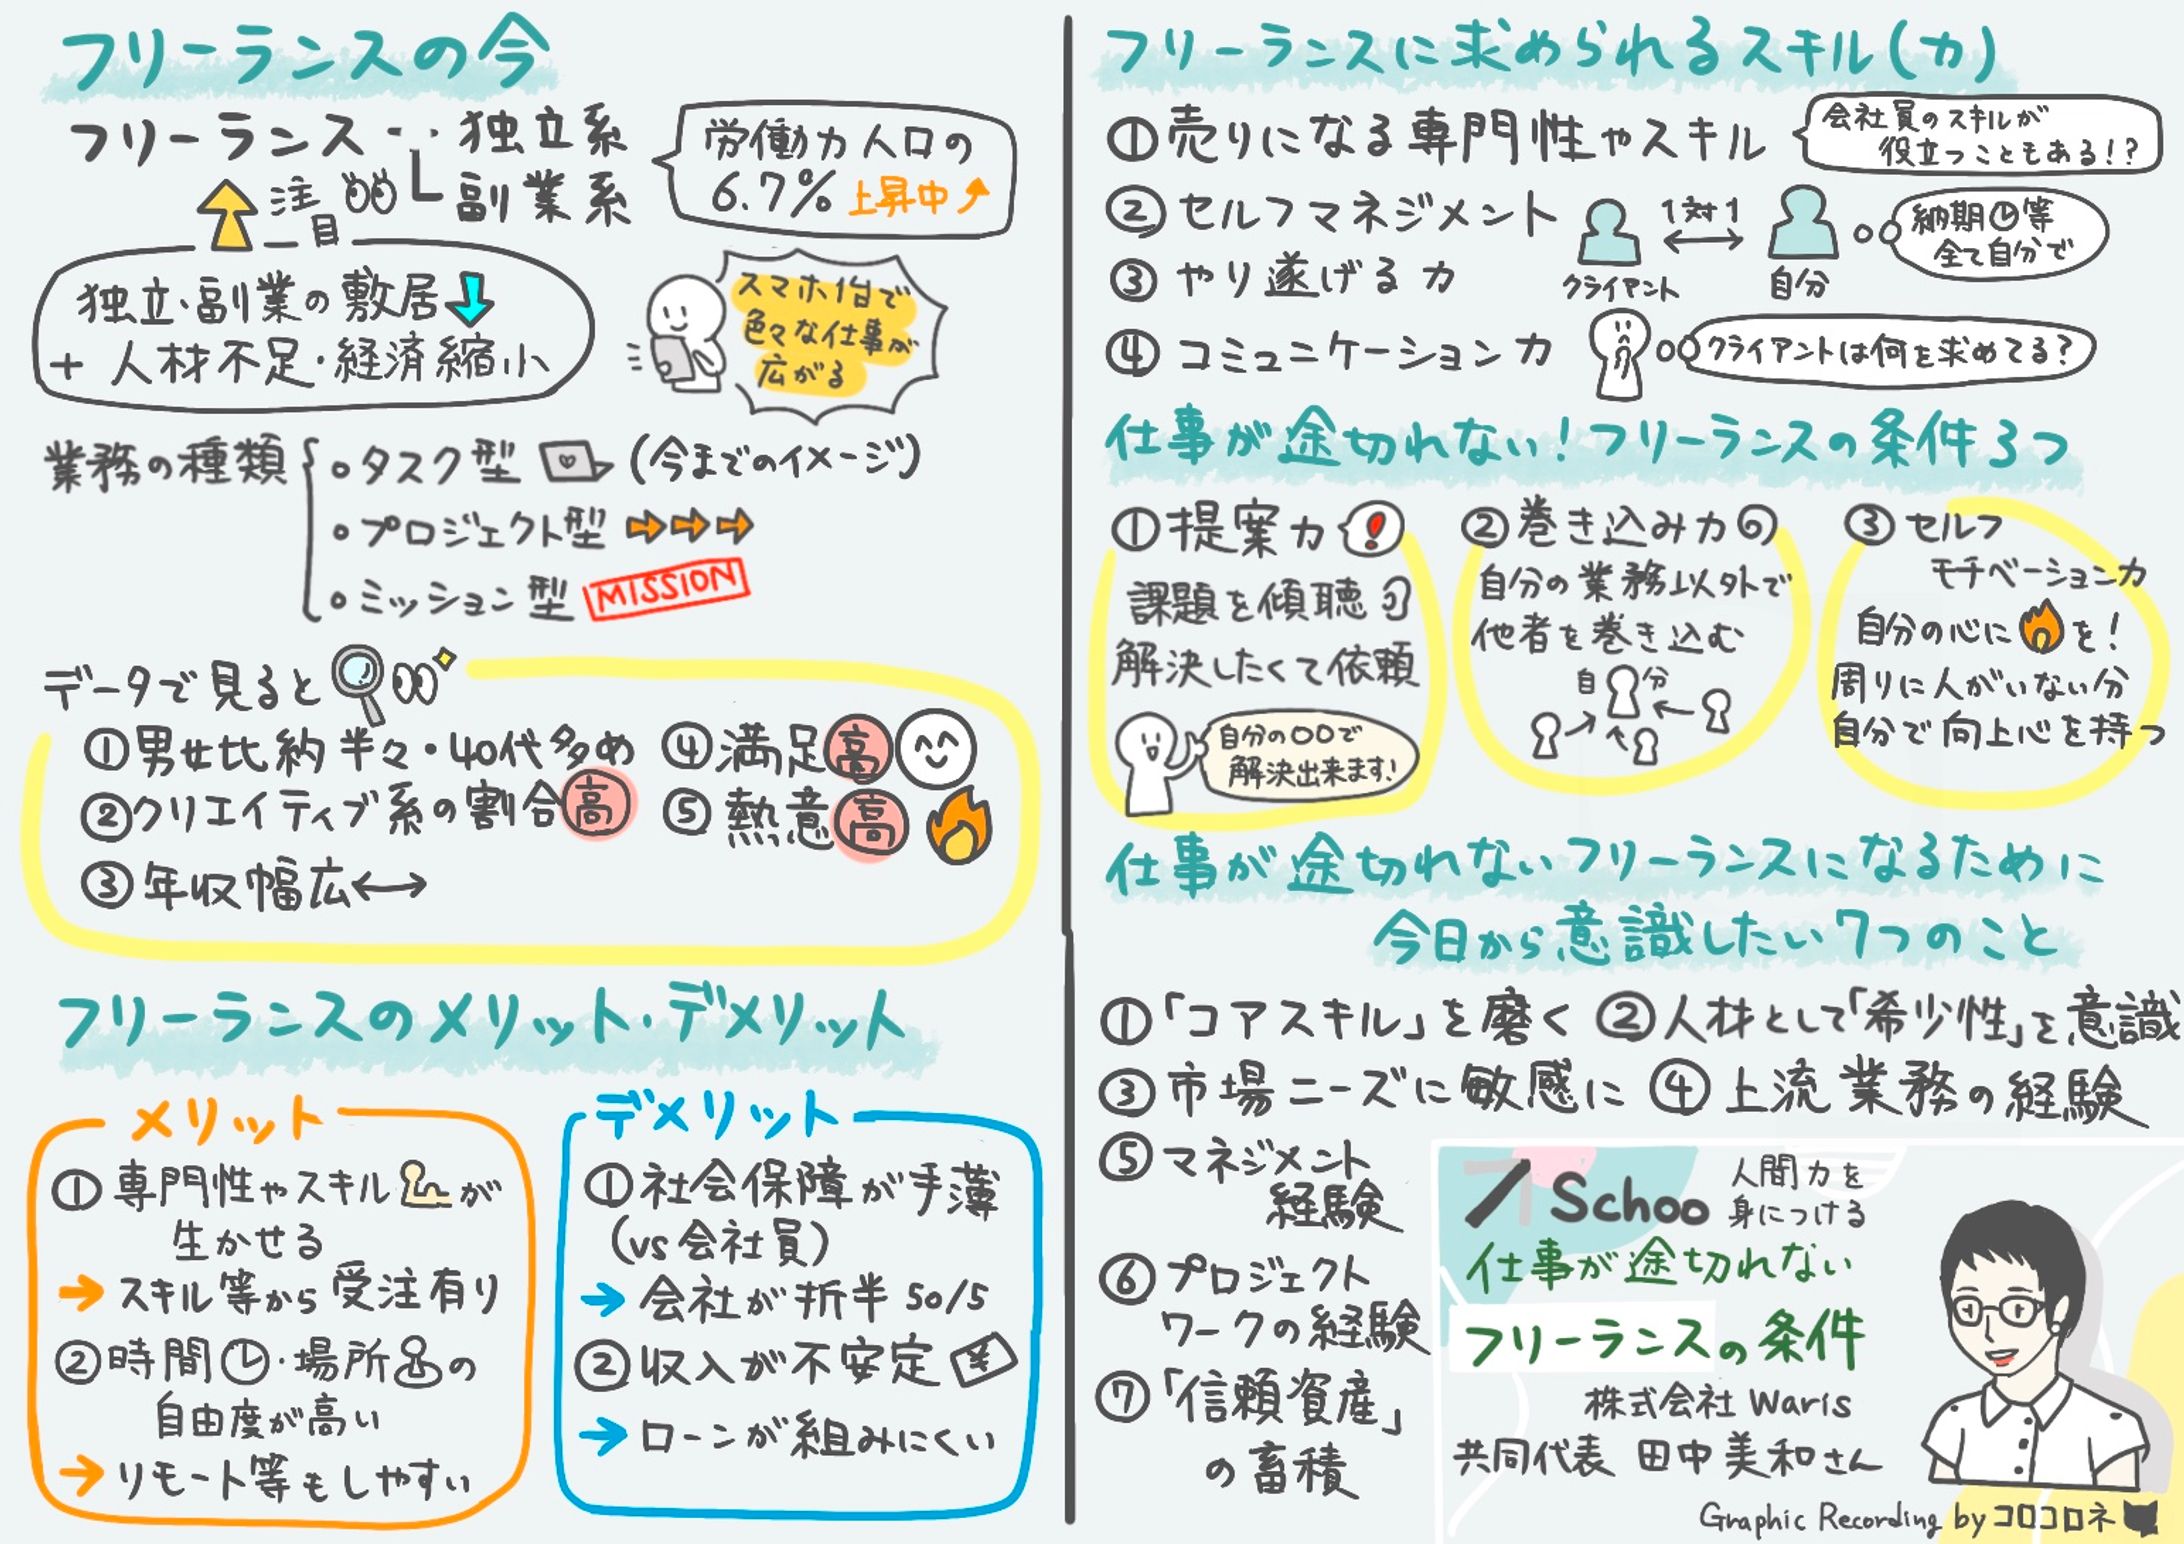 フリーランスの今
フリーランス‥独立系
副業系
注目
労働力人口の
6.7% 上昇中
独立・副業の敷居
+ 人材不足・経済縮小
スマホ1台で
色々な仕事が
広がる
業務の種類
タスク型 (今までのイメージ)
プロジェクト型
ミッション型 MISSION
データで見ると
①男女比約半々・40代多め
②クリエイティブ系の割合高
③年収幅広
④満足高
⑤熱意高
フリーランスのメリット・デメリット
メリット
①専門性やスキルが
生かせる
→スキル等から受注有り
②時間・場所の
自由度が高い
→リモート等もしやすい
デメリット
①社会保障が手薄
(vs会社員)
→会社が折半50/5
②収入が不安定 ¥
→ローンが組みにくい
フリーランスに求められるスキル(力)
①売りになる専門性やスキル
会社員のスキルが
役立つこともある!?
②セルフマネジメント
クライアント 1対1 自分
納期等
全て自分で
③やり遂げる力
④コミュニケーション力
クライアントは何を求めてる?
仕事が途切れない!フリーランスの条件3つ
①提案力
課題を傾聴
解決したくて依頼
自分の〇〇で
解決出来ます!
②巻き込み力
自分の業務以外で
他者を巻き込む
自分
③セルフ
モチベーション力
自分の心に を!
周りに人がいない分
自分で向上心を持つ
仕事が途切れないフリーランスになるために
今日から意識したい7つのこと
①「コアスキル」を磨く ②人材として「希少性」を意識
③市場ニーズに敏感に ④上流業務の経験
⑤マネジメント
経験
⑥プロジェクト
ワークの経験
⑦「信頼資産」
の蓄積
Schoo 人間力を
身につける
仕事が途切れない
フリーランスの条件
株式会社 Waris
共同代表 田中美和さん
Graphic Recording by コロコロネ